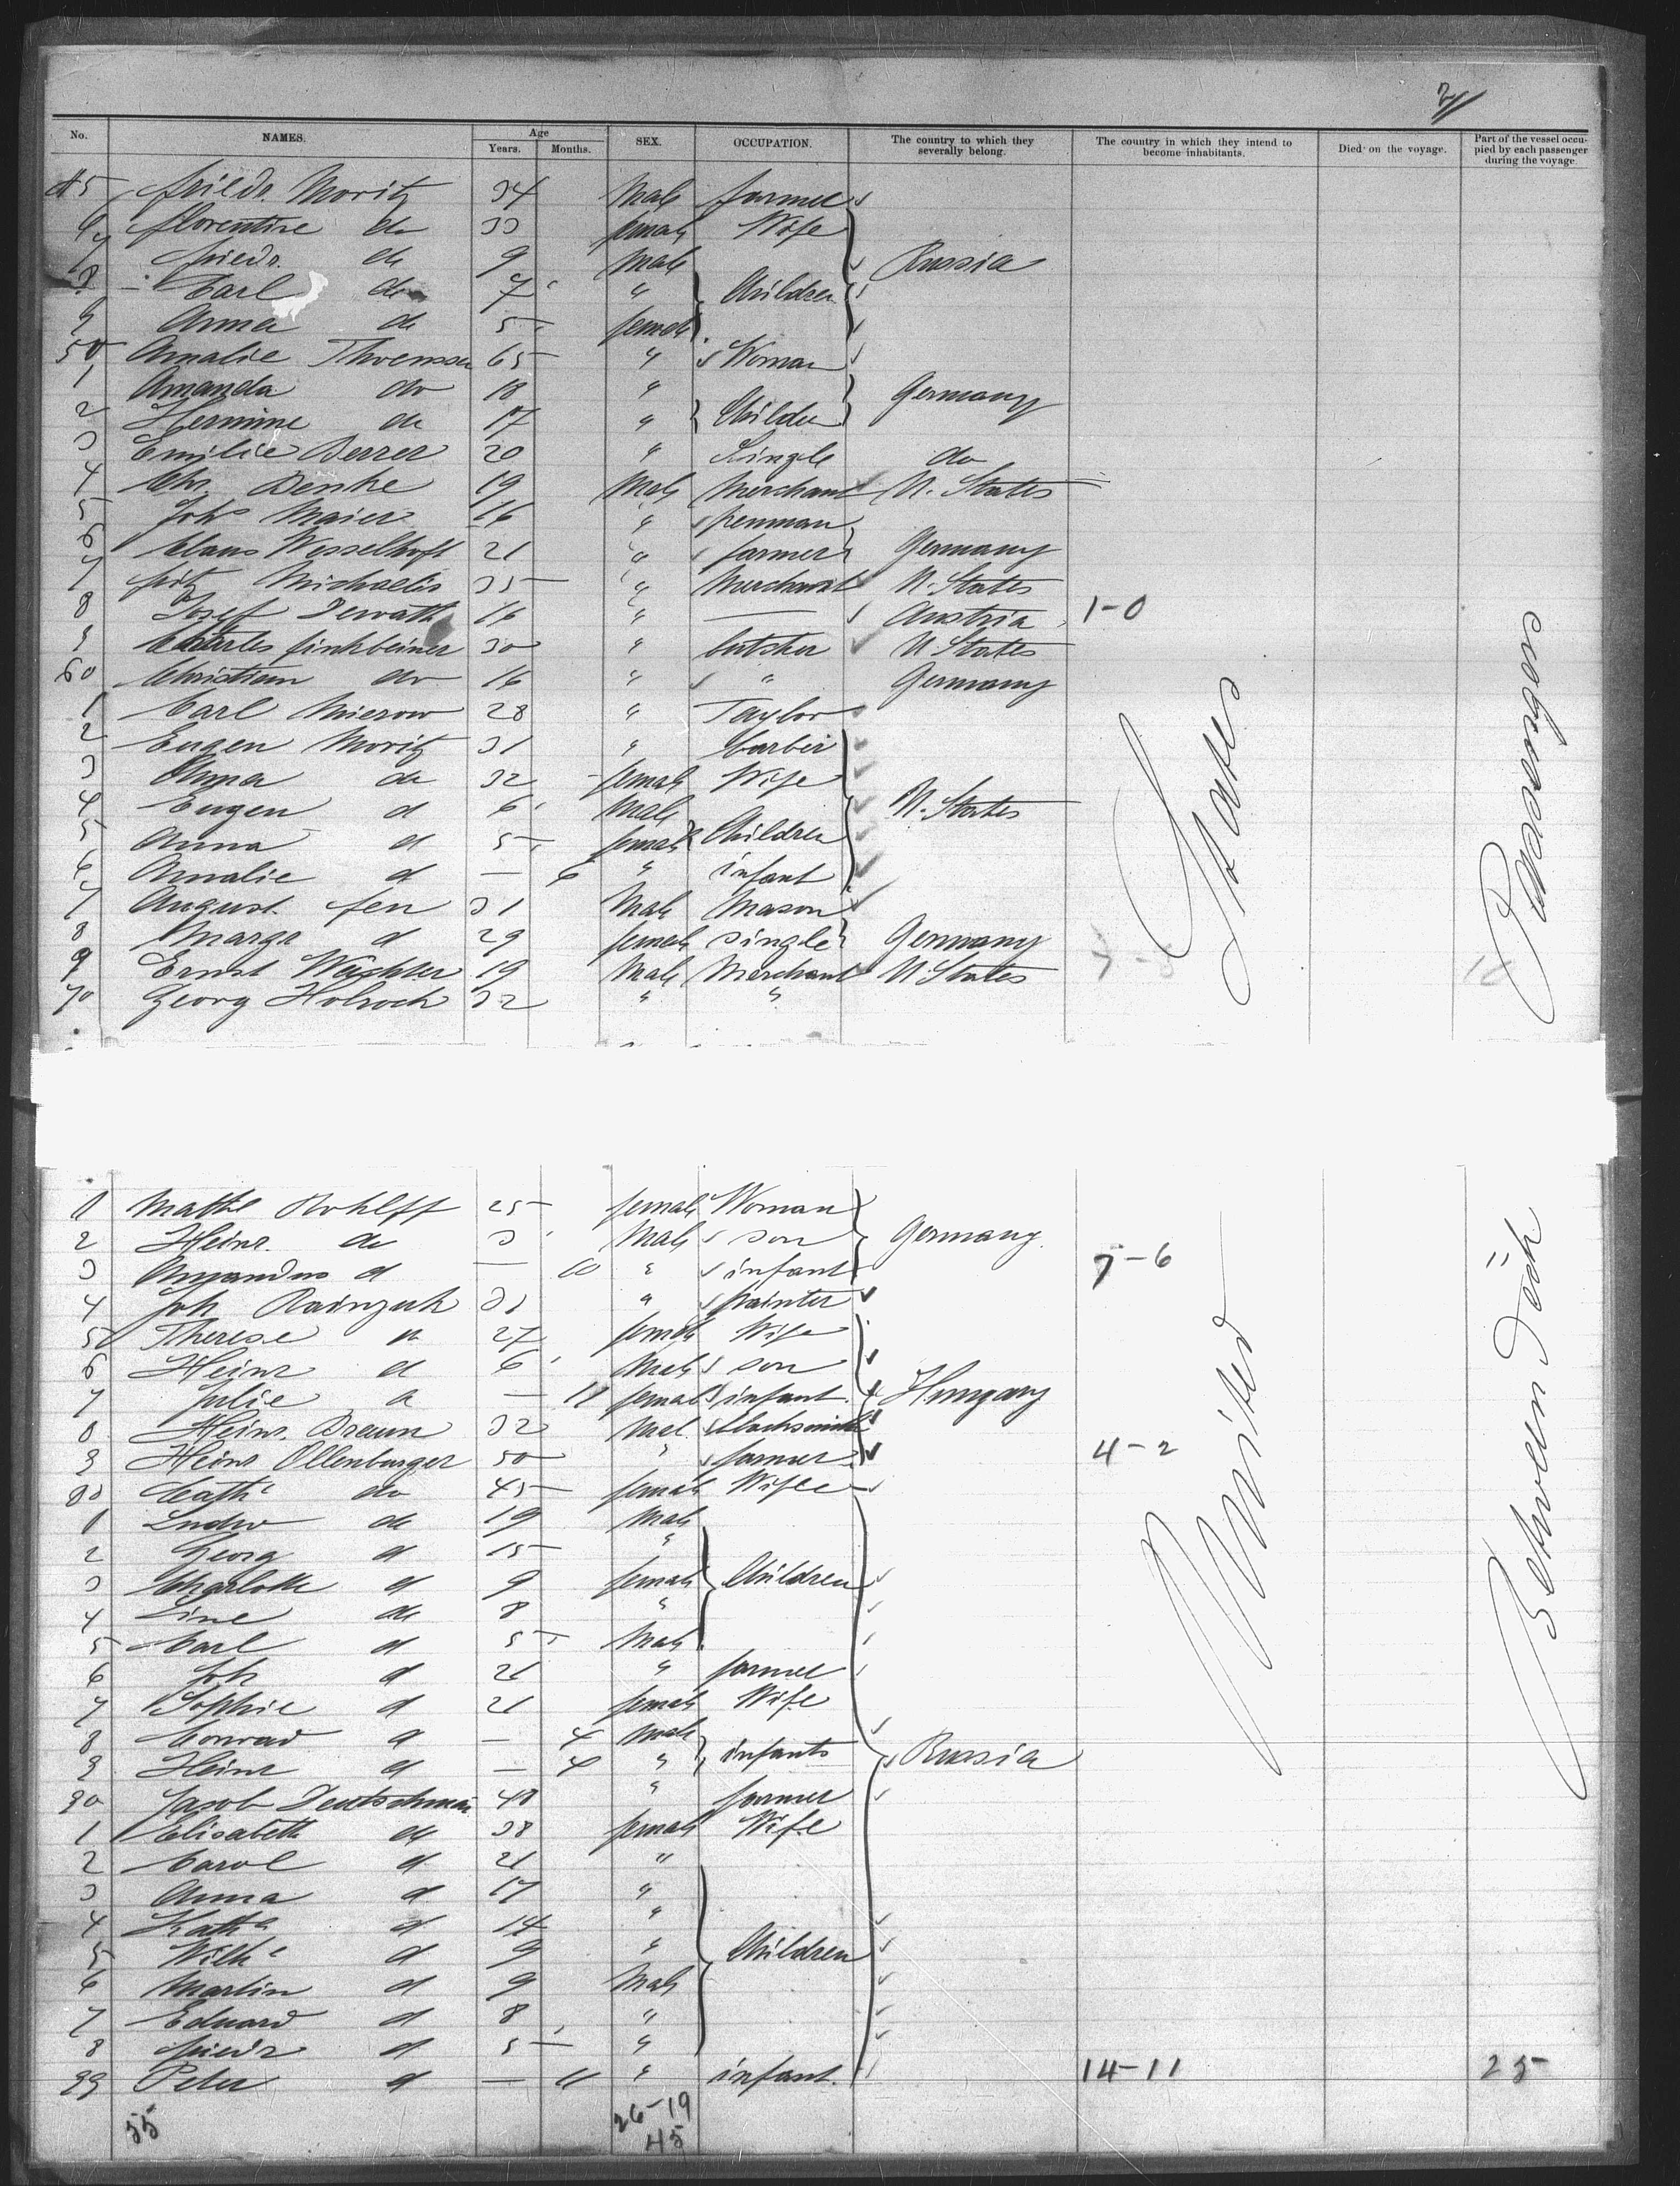 71
No. NAMES. Age Years. Months. SEX. OCCUPATION. The country to which they severally belong. The country in which they intend to become inhabitants. Died on the voyage. Part of the vessel occupied by each passenger during the voyage.
45 Friedr. Moritz 34 Male farmer
6 Florentine do 33 female Wife
7 Friedr. do 9 Male Russia
8 Carl do 7 " Children
9 Anna do 5 female
50 Amalie 65 " Woman
1 Amanda do 18 " Germany
2 Hermine do 17 " Childre
3 Emilie Berrer 20 " Single do
4 Chr. Denke 19 Male Merchant U. States
5 Joh Maier 16 " penman
6 Claus Wesselhoft 21 " farmer Germany
7 Fritz Michaelis 35 " Merchant U. States
8 Josef 16 " — Austria 1-0
9 Charles Finkbeiner 30 " butsher U States
60 Christian do 16 " " Germany
1 Carl Mierow 28 " Taylor
2 Eugen Moritz 31 " barbir
3 Anna do 32 female Wife
4 Eugen d 6 Male U. States
5 Anna d 5 female Children
6 Amalie d — 6 " infant
7 August fen 31 Male Mason
8 Margr d 29 female single Germany
9 Ernst Wächter 19 Male Merchant U States
70 Georg Holroch 32 " "
States
Passengers
1 Mathl Rohlff 25 female Woman
2 Heinr. do 3 Male son Germany.
3 Amandus d — 10 " infant 7-6
4 Joh 31 " painter
5 Therese d 27 female Wife
6 Heinr d 6 Male son
7 Julie d — 11 female infant. Hungary
8 Heinr. Braun 32 Mal. blacksmith
9 Heinr Ollenburger 50 " farmer 4-2
80 Cath do 45 female Wife
1 Ludw do 19 Male
2 Georg d 15 "
3 Charlotte d 9 female Children
4 Line do 8 "
5 Carl d 5 Male
6 Joh d 21 " farmer
7 Sophie d 21 female Wife
8 Conrad d — 4 Male
9 Heinr d — 4 " infants Russia
90 Jacob Deutschman 48 " farmer
1 Elisabeth do 38 female Wife
2 Carol d 21 "
3 Anna d 17 "
4 Kath d 14 "
5 Wilh d 9 " Children
6 Martin d 9 Male
7 Eduard d 8 "
8 Friedr d 5 "
99 Peter d — 11 " infant. 14-11 25
United
Between Deck
55 26-19
45